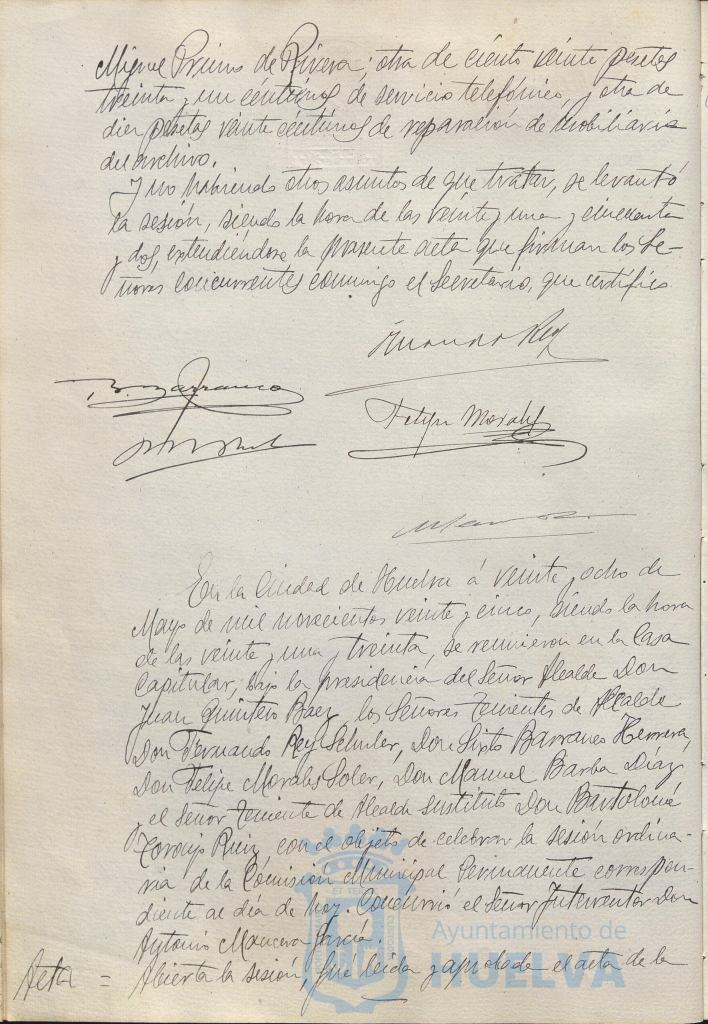 Miguel Primo de Rivera; otra de ciento veinte pesetas
treinta y un centimos de servicio telefónico, y otra de
diez pesetas veinte centimos de reparación de mobiliario
del archivo.
Y no habiendo otros asuntos de que tratar, se levantó
la sesión, siendo la hora de las veinte y una y cincuenta
y dos, extendiéndose la presente acta que firman los Se-
ñores concurrentes conmigo el Secretario, que certifico.
Fernando Rey
S. Barranco
Felipe Morales
En la Ciudad de Huelva á veinte y ocho de
Mayo de mil novecientos veinte y cinco, siendo la hora
de las veinte y una y treinta, se reunieron en la Casa
Capitular, bajo la presidencia del Señor Alcalde Don
Juan Quintero Baez, los Señores Tenientes de Alcalde
Don Fernando Rey Schuler, Don Sixto Barranco Herrera,
Don Felipe Morales Soler, Don Manuel Barba Díaz
y el Señor Teniente de Alcalde sustituto Don Bartolomé
Toronjo Ruiz con el objeto de celebrar la sesión ordina-
ria de la Comisión Municipal Permanente correspon-
diente al día de hoy. Concurrió el Señor Interventor Don
Antonio Mancera García.
Acta = Abierta la sesión, fué leida y aprobada el acta de la
Ayuntamiento de
HUELVA